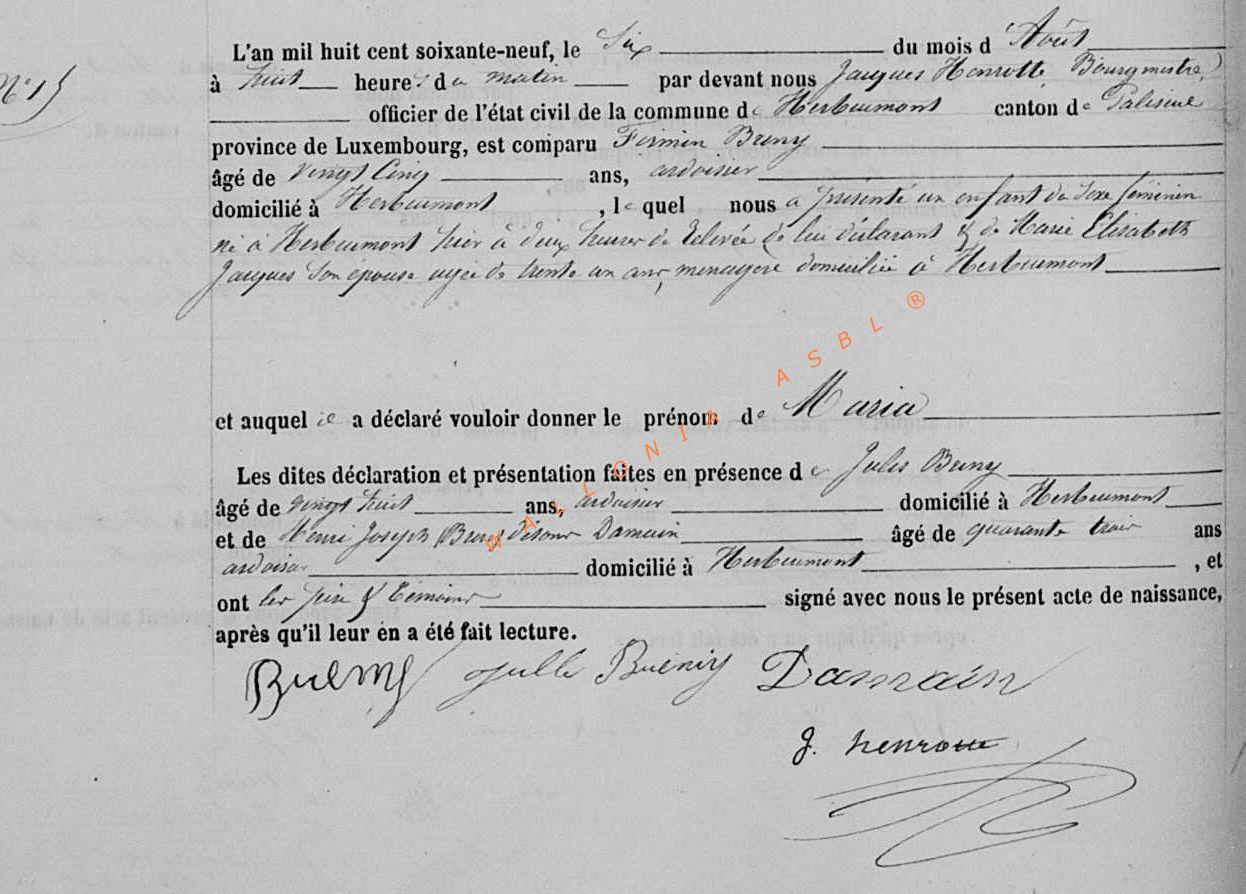 N° 15
L'an mil huit cent soixante-neuf, le Six du mois d'Août
à huit heures du matin par devant nous Jacques Henrotte Bourgmestre,
officier de l'état civil de la commune de Herbeumont canton de Paliseul
province de Luxembourg, est comparu Firmin Bueny
âgé de vingt Cinq ans, ardoisier
domicilié à Herbeumont, lequel nous a présenté un enfant du sexe féminin
né à Herbeumont hier à deux heures de relevée de lui déclarant & de Marie Elisabeth
Jacques son épouse agée de trente un ans, menagere domiciliée à Herbeumont
et auquel il a déclaré vouloir donner le prénom de Maria
Les dites déclaration et présentation faites en présence de Jules Bueny
âgé de vingt huit ans, ardoisier domicilié à Herbeumont
et de Henri Joseph Damain âgé de quarante trois ans
ardoisier domicilié à Herbeumont, et
ont les père & témoins signé avec nous le présent acte de naissance,
après qu'il leur en a été fait lecture.
Bueny Julle Buèniy Damain
J. henrotte
WALLONIA ASBL ®